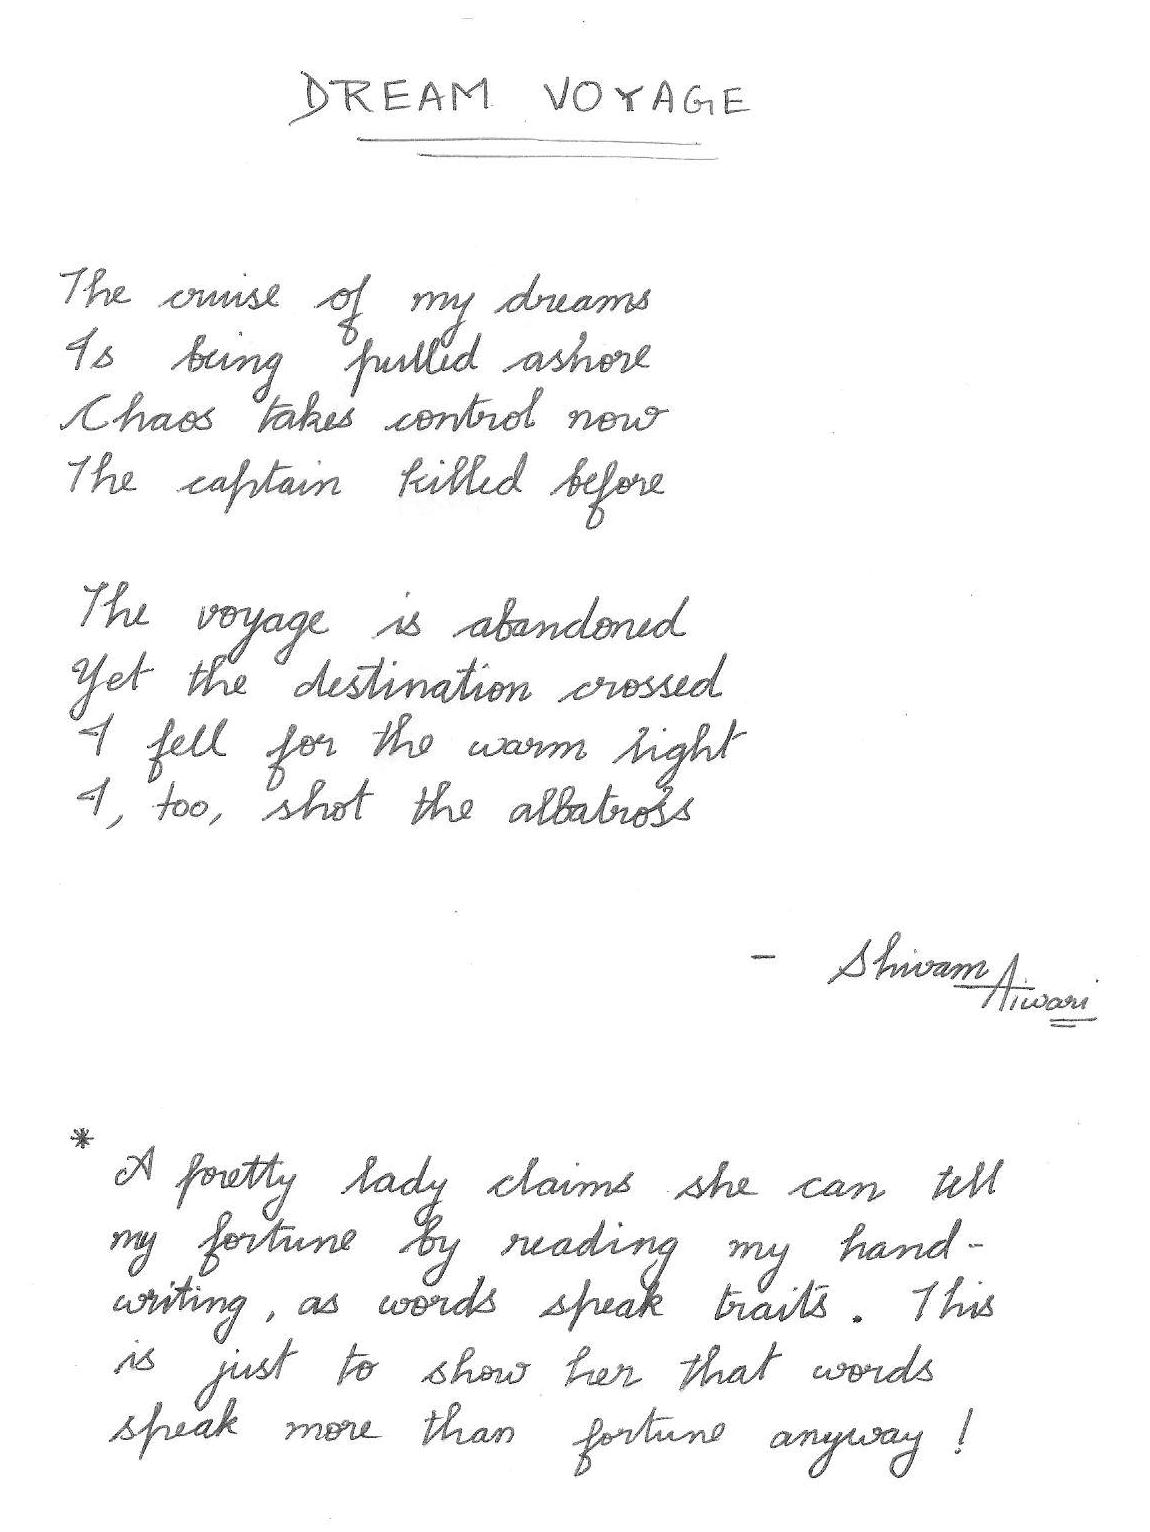 DREAM VOYAGE
The cruise of my dreams
Is being pulled ashore
Chaos takes control now
The captain killed before
The voyage is abandoned
Yet the destination crossed
I fell for the warm light
I, too, shot the albatross
- Shivam Aiwari
* A pretty lady claims she can tell
my fortune by reading my hand-
writing, as words speak traits. This
is just to show her that words
speak more than fortune anyway!